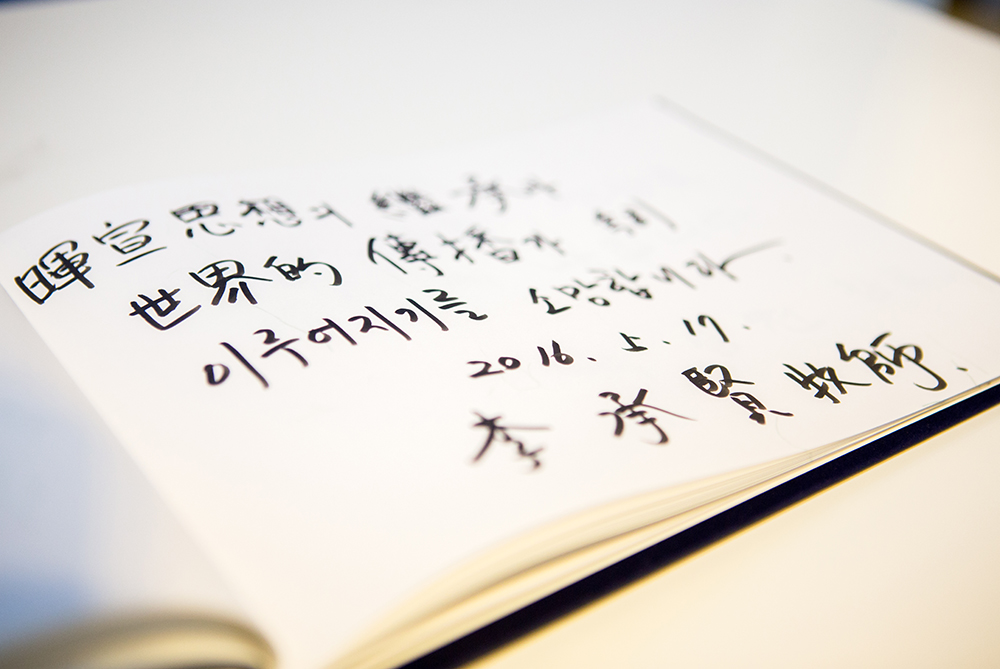 暉宣思想의 繼承과
世界的 傳播가
이루어지기를 소망합니다
2016. 5. 17.
李 承 賢 牧師.